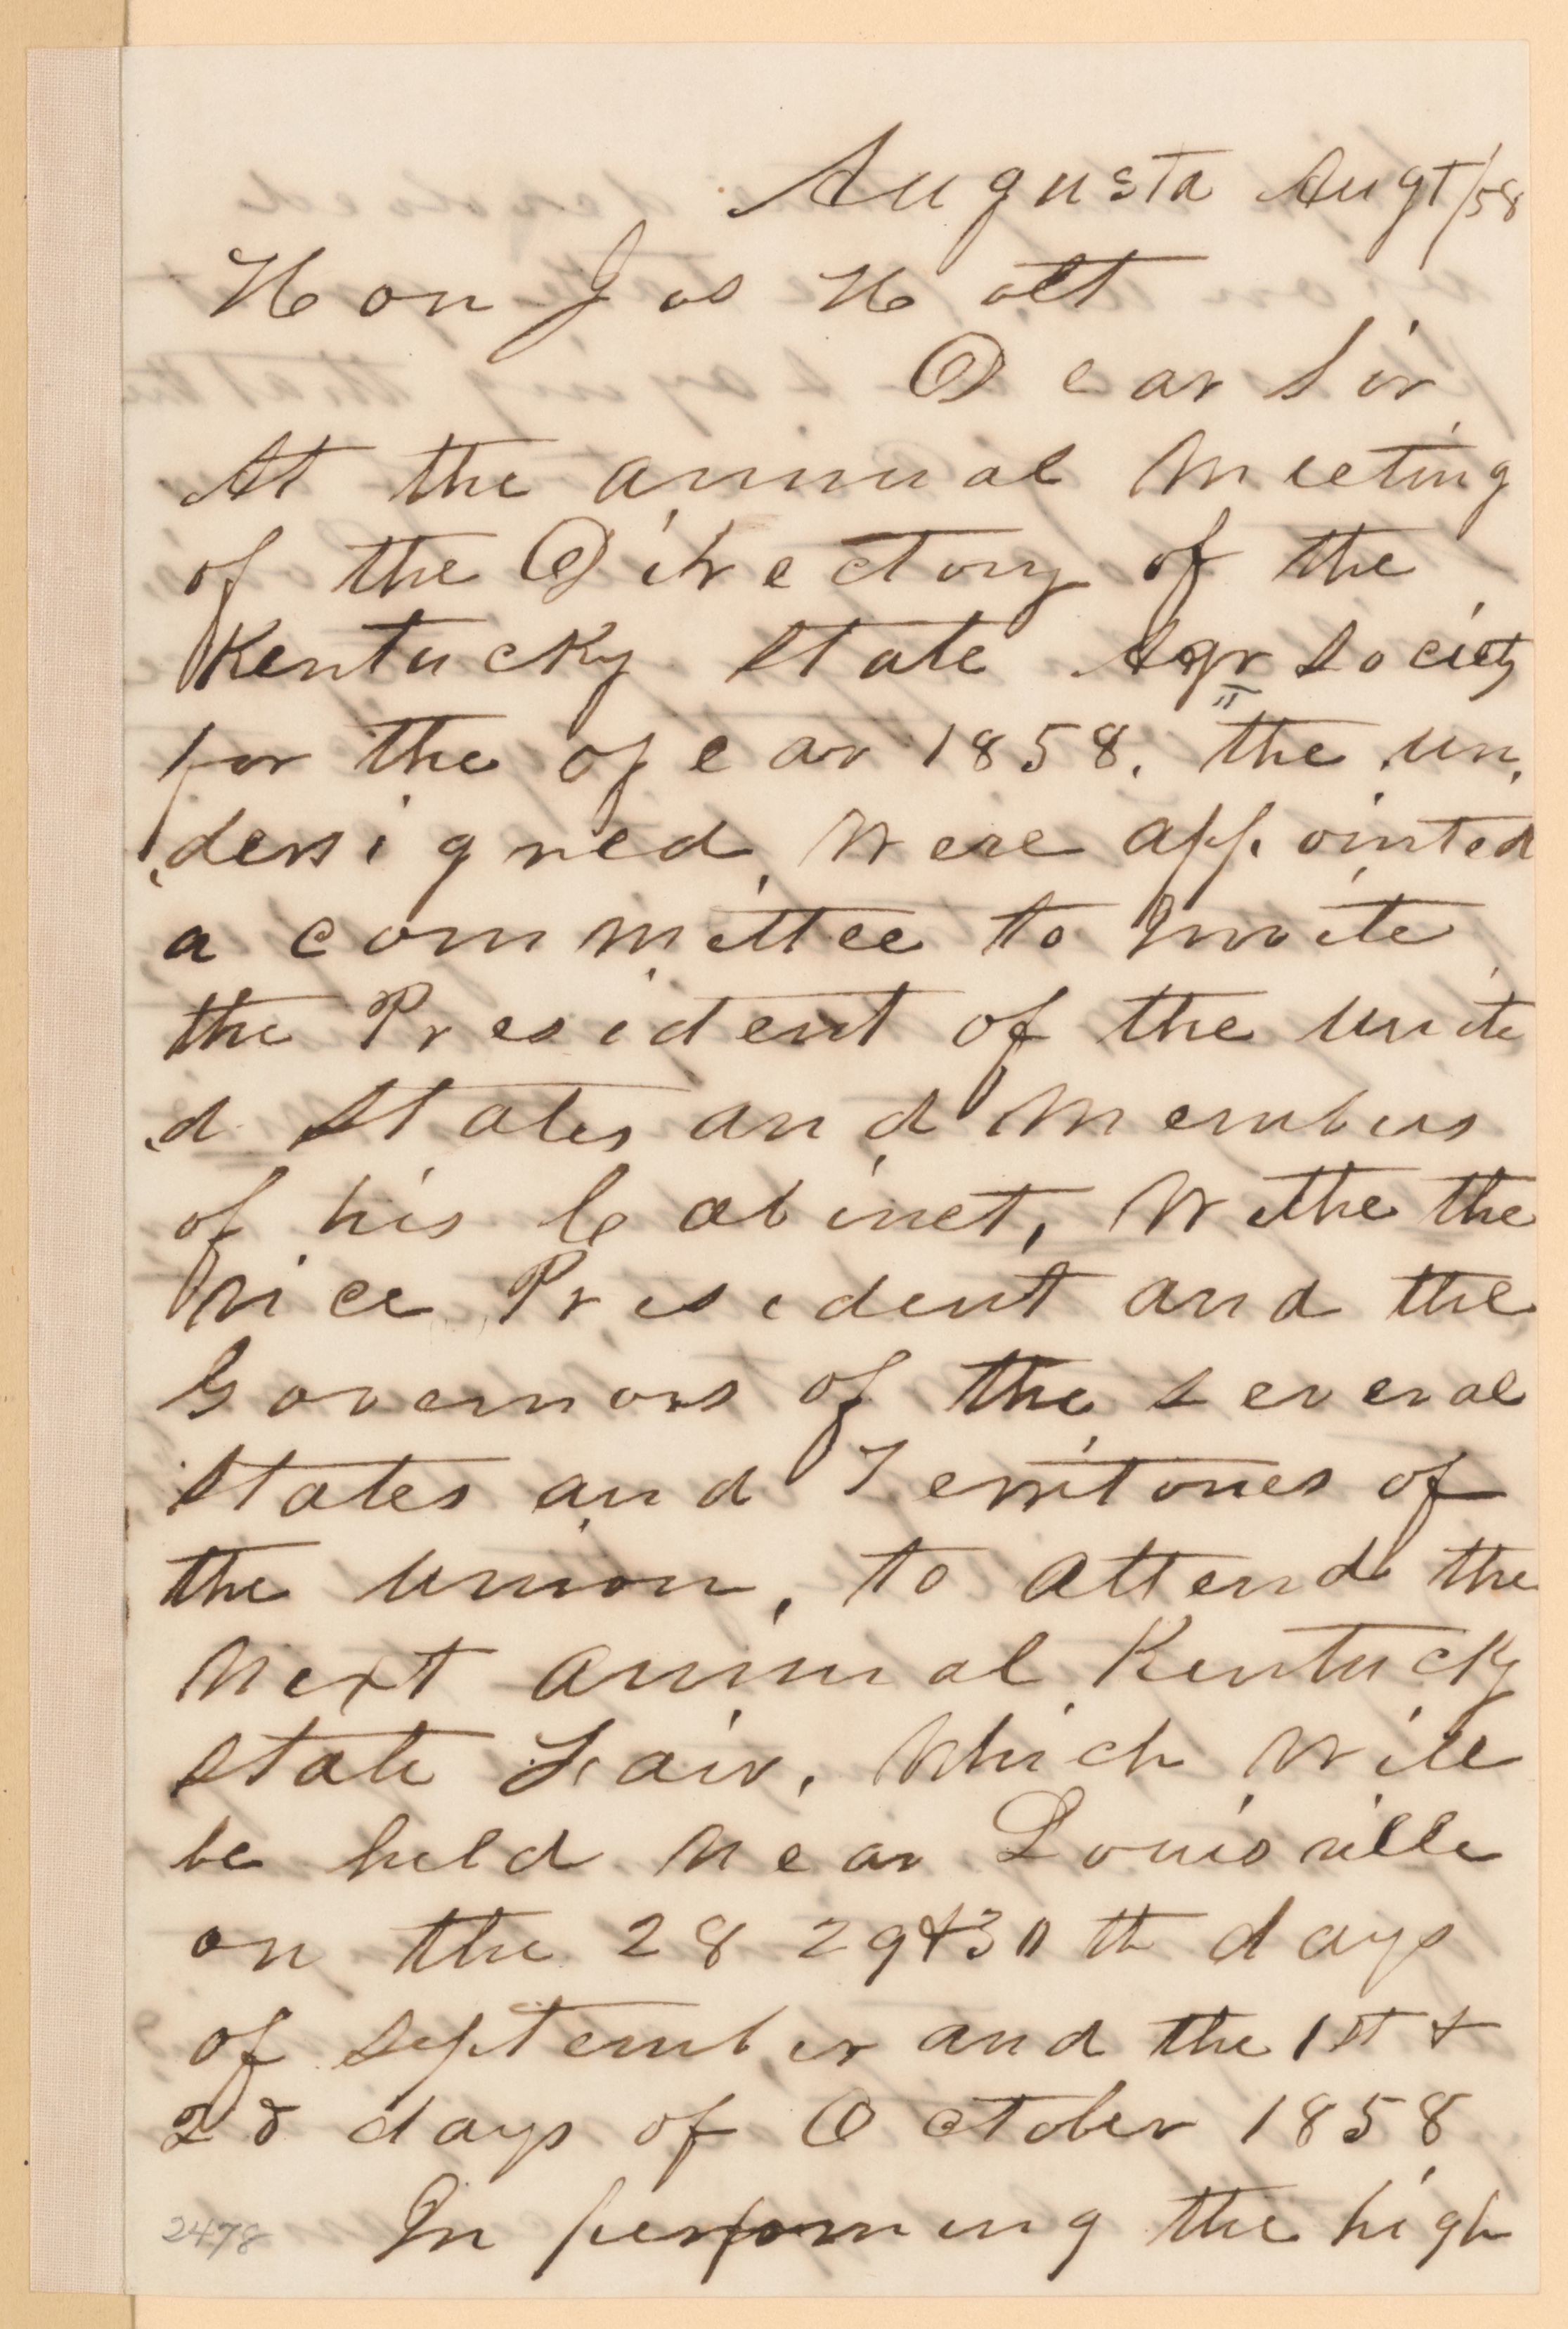 Augusta Augt/58
Hon Jos Holt
Dear Sir
At the annual Meeting
of the Directory of the
Kentucky State Agr Society
for the year 1858. the un,
,dersigned, Were appointed
a committee to Invite
the President of the Unite
,d States and Members
of his Cabinet, Withe the
Vice President and the
Governors of the several
States and Territories of
the Union, to attend the
Next annual Kentucky
State Fair, Which Will
be held Near Louisville
on the 28 29 & 30th days
of September and the 1st &
2d days of October 1858
In performing the high
2478